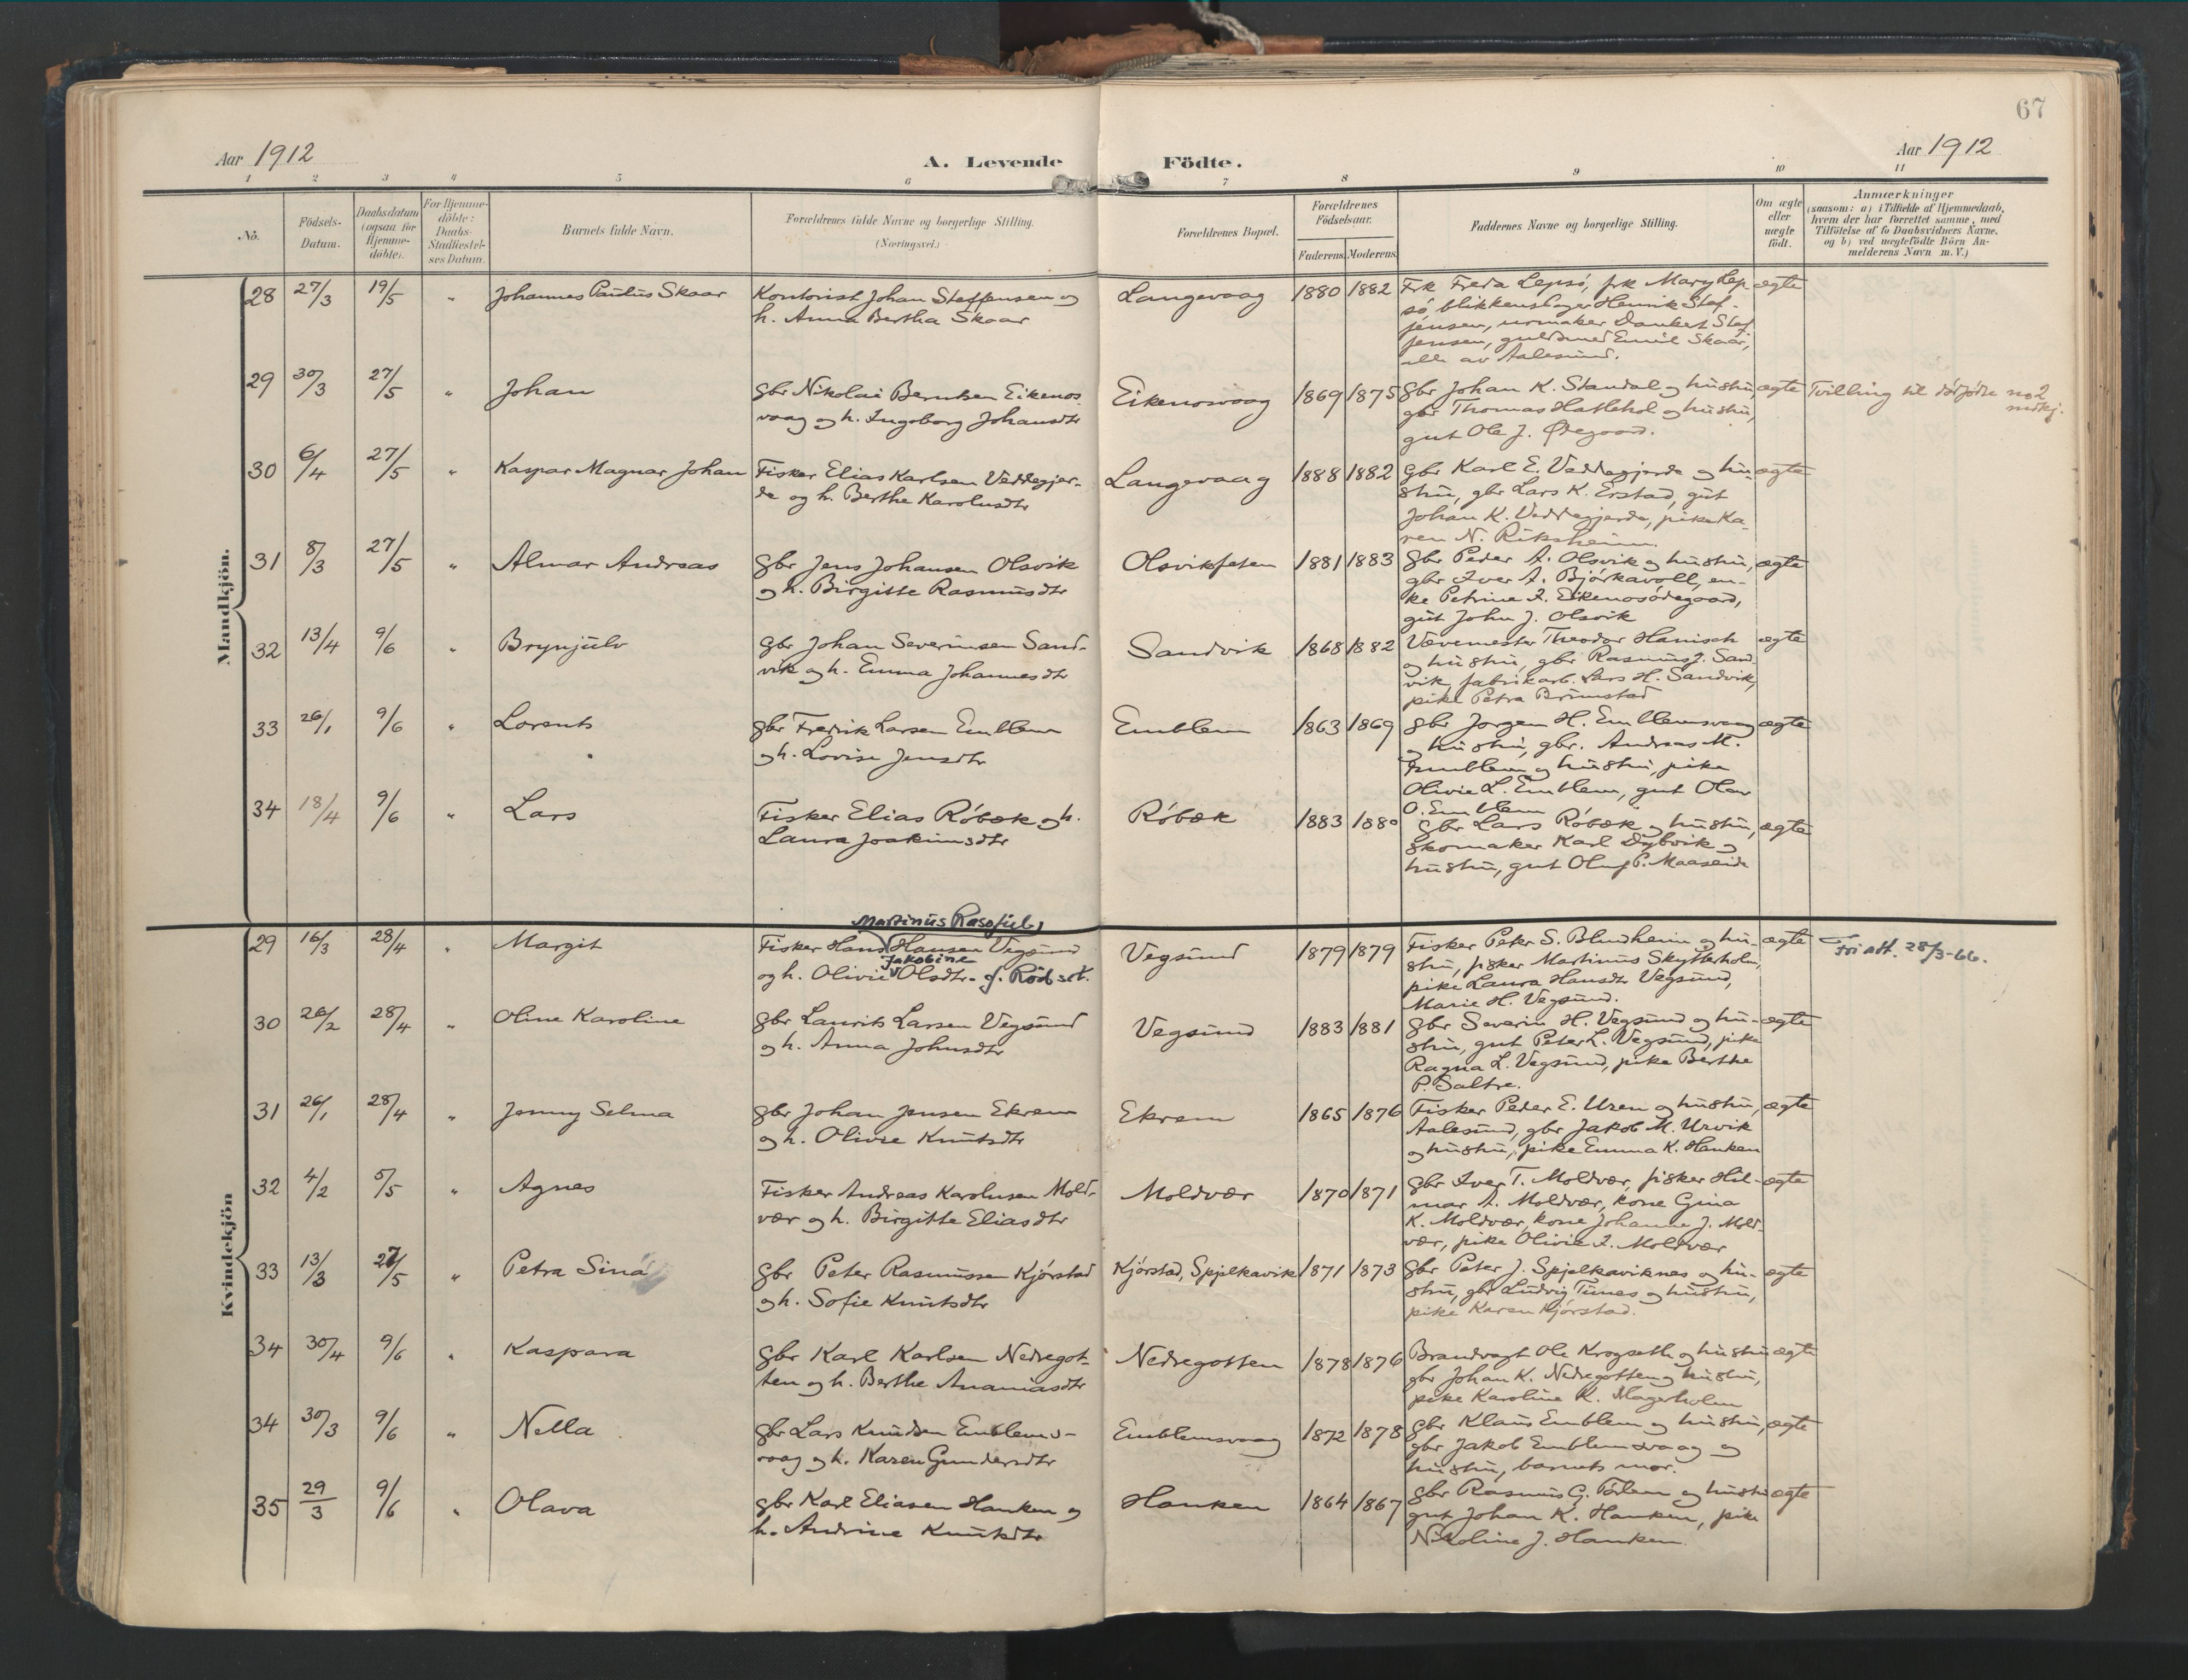 67
Aar 1912
A. Levende Födte.
Aar 1912
1 2 3 4 5 6 7 8 9 10 11
No.
Födsels-
Datum.
Daabsdatum
(ogsaa for
Hjemme-
döbte).
For Hjemme-
döbte:
Daabs-
Stadfæstel-
ses Datum.
Barnets fulde Navn.
Forældrenes fulde Navne og borgerlige Stilling.
(Næringsvei.)
Forældrenes Bopæl.
Forældrenes
Födselsaar.
Faderens. Moderens.
Faddernes Navne og borgerlige Stilling.
Om ægte
eller
uægte
födt.
Anmærkninger
(saasom: a) i Tilfælde af Hjemmedaab,
hvem der har forrettet samme, med
Tilföielse af to Daabsvidners Navne,
og b) ved uægtefödte Börn An-
melderens Navn m. V.)
Mandkjön.
28 27/3 19/5 " Johannes Paulus Skaar
Kontorist Johan Steffensen og
h. Anna Bertha Skaar
Langevaag 1880 1882
Frk Freda Lepsö, frk Mary Lep-
sö, blikkenslager Henrik Stef-
fensen, urmaker Dankert Stef-
fensen, guldsmed Emil Skaar,
alle av Aalesund.
ægte
29 30/3 27/5 " Johan
Gbr Nikolai Berntsen Eikenos-
vaag og h. Ingeborg Johansdtr
Eikenosvaag 1869 1875
Gbr Johan K. Standal og hustru,
gbr Thomas Hatlehol og hustru,
gut Ole J. Ødegaard.
ægte
Tvilling til dödfödte no 2
mdkj.
30 6/4 27/5 " Kaspar Magnar Johan
Fisker Elias Karlsen Veddegjer-
de og h. Berthe Karolusdtr
Langevaag 1888 1882
Gbr Karl E. Veddegjerde og hu-
stru, gbr Lars K. Erstad, gut
Johan K. Veddegjerde, pike Ka-
ren N. Riksheim.
ægte
31 8/3 27/5 " Almar Andreas
Gbr Jens Johansen Olsvik
og h. Birgitte Rasmusdtr
Olsvikfeten 1881 1883
Gbr Peder A. Olsvik og hustru,
gbr Iver A. Björkavoll, en-
ke Petrine I. Eikenosödegaard,
gut John J. Olsvik
ægte
32 13/4 9/6 " Brynjulv
Gbr Johan Severinsen Sand-
vik og h. Emma Johannesdtr
Sandvik 1868 1882
Vævemester Theodor Hanisch
og hustru, gbr Rasmus J. Sand-
vik, fabrikarb. Lars H. Sandvik,
pike Petra Brunstad
ægte
33 26/1 9/6 " Lorents
Gbr Fredrik Larsen Emblem
og h. Lovise Jensdtr
Emblem 1863 1869
Gbr Jörgen H. Emblemsvaag
og hustru, gbr. Andreas M.
Emblem og hustru, pike
Olivie L. Emblem, gut Olav
O. Emblem
ægte
34 18/4 9/6 " Lars
Fisker Elias Röbæk og h.
Laura Joakimsdtr
Röbæk 1883 1880
Gbr Lars Röbæk og hustru,
skomaker Karl Dybvik og
hustru, gut Oluf P. Maaseide
ægte
Kvindekjön
29 16/3 28/4 " Margit
Martinus
Fisker Hans Hansen Vegsund
Jakobine
og h. Olivie Olsdtr. f. Rödset.
Vegsund 1879 1879
Fisker Peter S. Blindheim og hu-
stru, fisker Martinus Skytterholm,
pike Laura Hansdtr Vegsund,
Marie H. Vegsund.
ægte
Fri att. 28/3-66.
30 26/2 28/4 " Oline Karoline
Gbr Laurits Larsen Vegsund
og h. Anna Johnsdtr
Vegsund 1883 1881
Gbr Severin H. Vegsund og hu-
stru, gut Peter L. Vegsund, pike
Ragna L. Vegsund, pike Berthe
P. Saltre.
ægte
31 26/1 28/4 " Jenny Selma
Gbr Johan Jensen Ekrem
og h. Olivie Knutsdtr
Ekrem 1865 1876
Fisker Peder E. Uren og hustru,
Aalesund, gbr Jakob M. Urvik
og hustru, pike Emma K. Hanken
ægte
32 4/2 5/5 " Agnes
Fisker Andreas Karolusen Mold-
vær og h. Birgitte Eliasdtr
Moldvær 1870 1871
Gbr Iver T. Moldvær, fisker Hil-
mar A. Moldvær, kone Gina
K. Moldvær, kone Johanna J. Mold-
vær, pike Olivie I. Moldvær
ægte
33 13/3 27/5 " Petra Sina
Gbr Peter Rasmussen Kjörstad
og h. Sofie Knutsdtr
Kjörstad, Spjelkavik 1871 1873
Gbr Peter J. Spjelkaviknes og hu-
stru, gbr Ludvig Tunes og hustru,
pike Karen Kjörstad.
ægte
34 30/4 9/6 " Kaspara
Gbr Karl Karlsen Nedregot-
ten og h. Berthe Ananiasdtr
Nedregotten 1878 1876
Brandvagt Ole Krogseth og hustru
gbr Johan K. Nedregotten og hustru,
pike Karoline K. Magerholm
ægte
34 30/3 9/6 " Nella
Gbr Lars Knudsen Emblems-
vaag og h. Karen Gundersdtr
Emblemsvaag 1872 1878
Gbr Klaus Emblem og hustru,
gbr Jakob Emblemsvaag og
hustru, barnets mor.
ægte
35 29/3 9/6 " Olava
Gbr Karl Eliasen Hanken og
h. Andrine Knutsdtr
Hanken 1864 1867
Gbr Rasmus G. Törlen og hustru
gut Johan K. Hanken, pike
Nikoline J. Hanken.
ægte